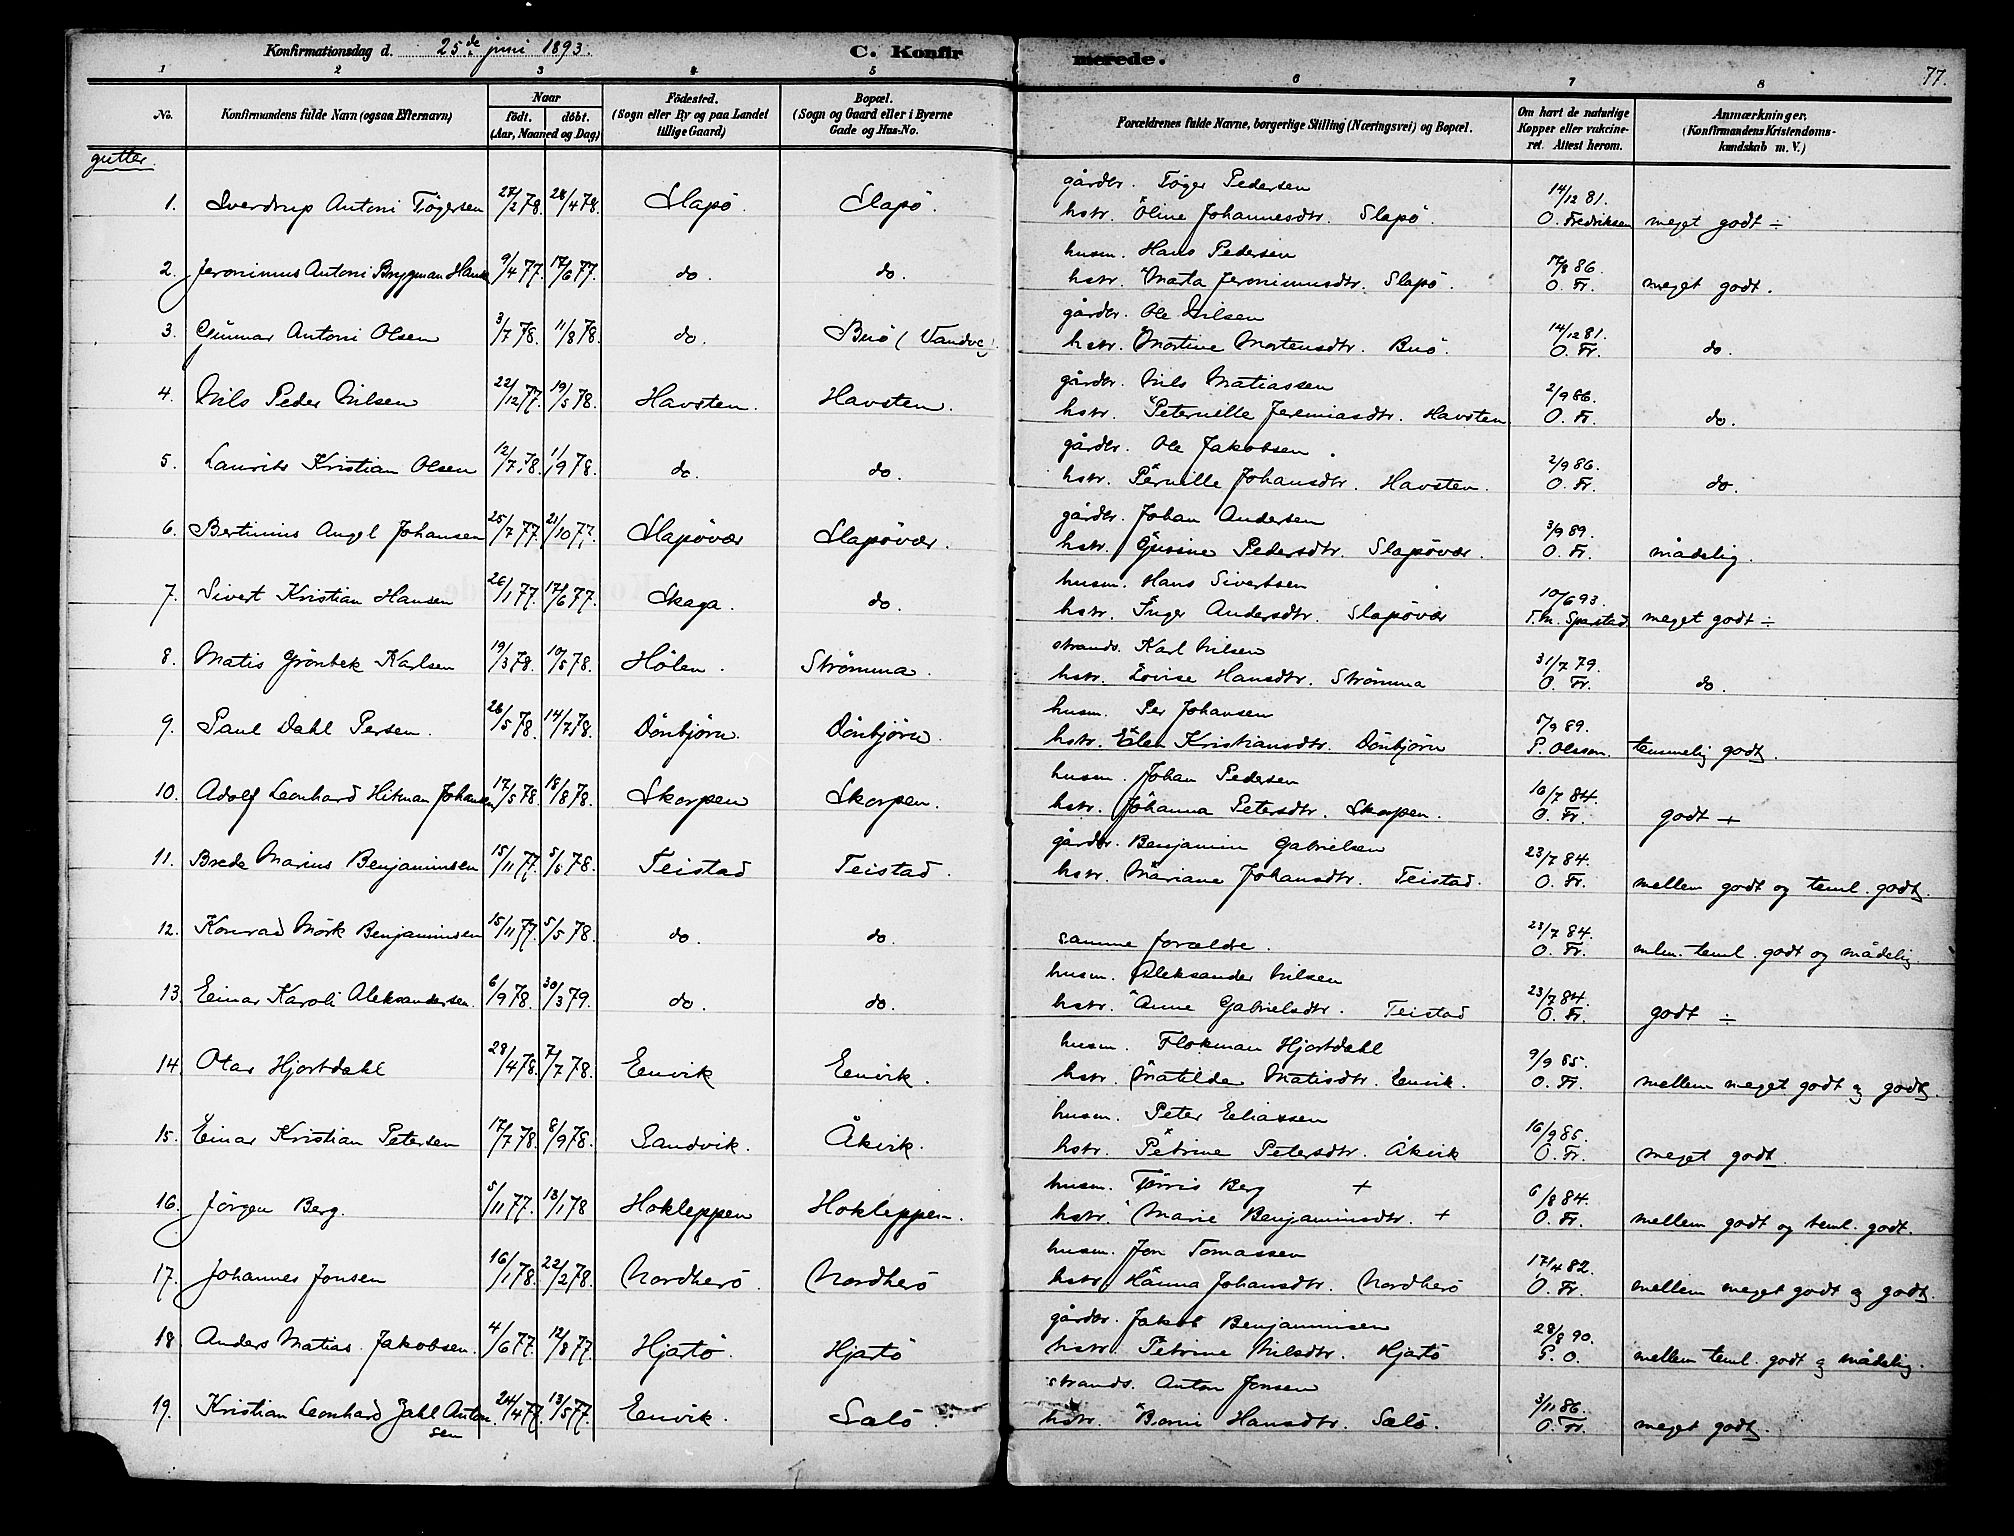 Konfirmationsdag d. 25de juni 1893. C. Konfirmerede. 77.
1 2 3 4 5 6 7 8
No. Konfirmandens fulde Navn (ogsaa Efternavn) Naar født. døbt. (Aar, Maaned og Dag) Fødested. (Sogn eller By og paa Landet tillige Gaard) Bopæl. (Sogn og Gaard eller i Byerne Gade og Hus-No. Forældrenes fulde Navne, borgerlige Stilling (Næringsvei) og Bopæl. Om havt de naturlige Kopper eller vakcineret. Attest herom. Anmærkninger. (Konfirmandens Kristendomskundskab m. V.)
gutter.
gårdbr. Töger Pedersen
1. Sverdrup Antoni Tögersen 27/2 78. 28/4 78. Slapö. Slapö. hstr. Oline Johannesdtr. Slapö. 14/12 81. O. Fredriksen meget godt ÷
husm. Hans Pedersen
2. Jeronimus Antoni Brygman Hansen 9/4 77. 17/6 77. do. do. hstr. Marta Jeronimusdtr. Slapö. 17/8 86. O. Fr. meget godt.
gårdbr. Ole Nilsen
3. Gunnar Antoni Olsen 3/7 78. 11/8 78. do. Buö (Vandve) hstr. Martine Mortensdtr. Buö. 14/12 81. O. Fr. do.
gårdbr. Nils Matiassen
4. Nils Peder Nilsen 22/12 77. 19/5 78. Havsten. Havsten. hstr. Peternille Jeremiasdtr. Havsten 2/9 86. O. Fr. do.
gårdbr. Ole Jakobsen.
5. Laurits Kristian Olsen 12/7 78. 1/9 78. do. do. hstr. Pernille Johansdtr. Havsten. 2/9 86. O. Fr. do.
gårdbr. Johan Andersen
6. Bertinius Angel Johansen 25/7 77. 21/10 77. Slapövær Slapövær. hstr. Gurine Pedersdtr. Slapövær. 3/9 89. O. Fr. mådelig.
husm. Hans Sivertsen
7. Sivert Kristian Hansen 26/1 77. 17/6 77. Skaga. do. hstr. Inger Andersdtr. Slapövær 10/6 93. meget godt ÷
strands. Karl Nilsen
8. Matis Grönbek Karlsen 19/3 78. 19/5 78. Hölen. Strömma. hstr. Lovise Hansdtr. Strömma 31/7 79. O. Fr. do.
husm. Per Johansen
9. Paul Dahl Persen. 26/5 78. 14/7 78. Dönbjörn. Dönbjörn. hstr. Elen Kristiansdtr. Dönbjörn 5/9 89. P. Olsson. temmelig godt.
husm. Johan Pedersen
10. Adolf Leonhard Hitman Johansen 17/5 78 18/8 78. Skorpen Skorpen. hstr. Johanna Petersdtr. Skorpen. 16/7 84. O. Fr. godt +
gårdbr. Benjamin Gabrielsen
11. Brede Marius Benjaminsen 15/11 77. 5/5 78. Teistad Teistad. hstr. Mariane Johansdtr. Teistad. 23/7 84. O. Fr. mellem godt og teml. godt.
12. Konrad Mörk Benjaminsen 15/11 77. 5/5 78. do. do. samme forældre. 23/7 84. O. Fr. mlm. teml. godt og mådelig.
husm. Aleksander Nilsen
13. Einar Karoli Aleksandersen. 6/9 78. 30/3 79. do. do. hstr. Anne Gabrielsdtr. Teistad 23/7 84. O. Fr. godt ÷
husm. Flokman Hjortdahl
14. Otar Hjortdahl 28/4 78. 7/7 78. Envik Envik. hstr. Matilde Matisdtr. Envik. 9/9 85. O. Fr. mellem meget godt og godt.
husm. Peter Eliassen
15. Einar Kristian Petersen 17/7 78. 8/9 78. Sandvik. Åkvik. hstr. Petrine Petersdtr. Åkvik 16/9 85. O. Fr. meget godt.
husm. Törris Berg +
16. Jörgen Berg. 5/11 77. 13/1 78 Hokleppen Hokleppen. hstr. Marie Benjaminsdtr. + 6/8 84. O. Fr. mellem godt og teml. godt.
husm. Jon Tomassen
17. Johannes Jonsen 16/1 78. 22/2 78. Nordherö. Nordherö hstr. Hanna Johansdtr. Nordherö 17/4 82. O. Fr. mellem meget godt og godt.
gårdbr. Jakob Benjaminsen
18 Anders Matias Jakobsen. 4/6 77. 12/8 77. Hjartö. Hjartö hstr. Petrine Nilsdtr. Hjartö 28/8 90. P. O. mellem teml. godt og mådelig.
strands. Anton Jensen
19. Kristian Leonhard Jahl Antonsen 24/4 77. 13/5 77. Envik. Salö. hstr. Hansdtr. Salö. 3/11 86. O. Fr. meget godt.